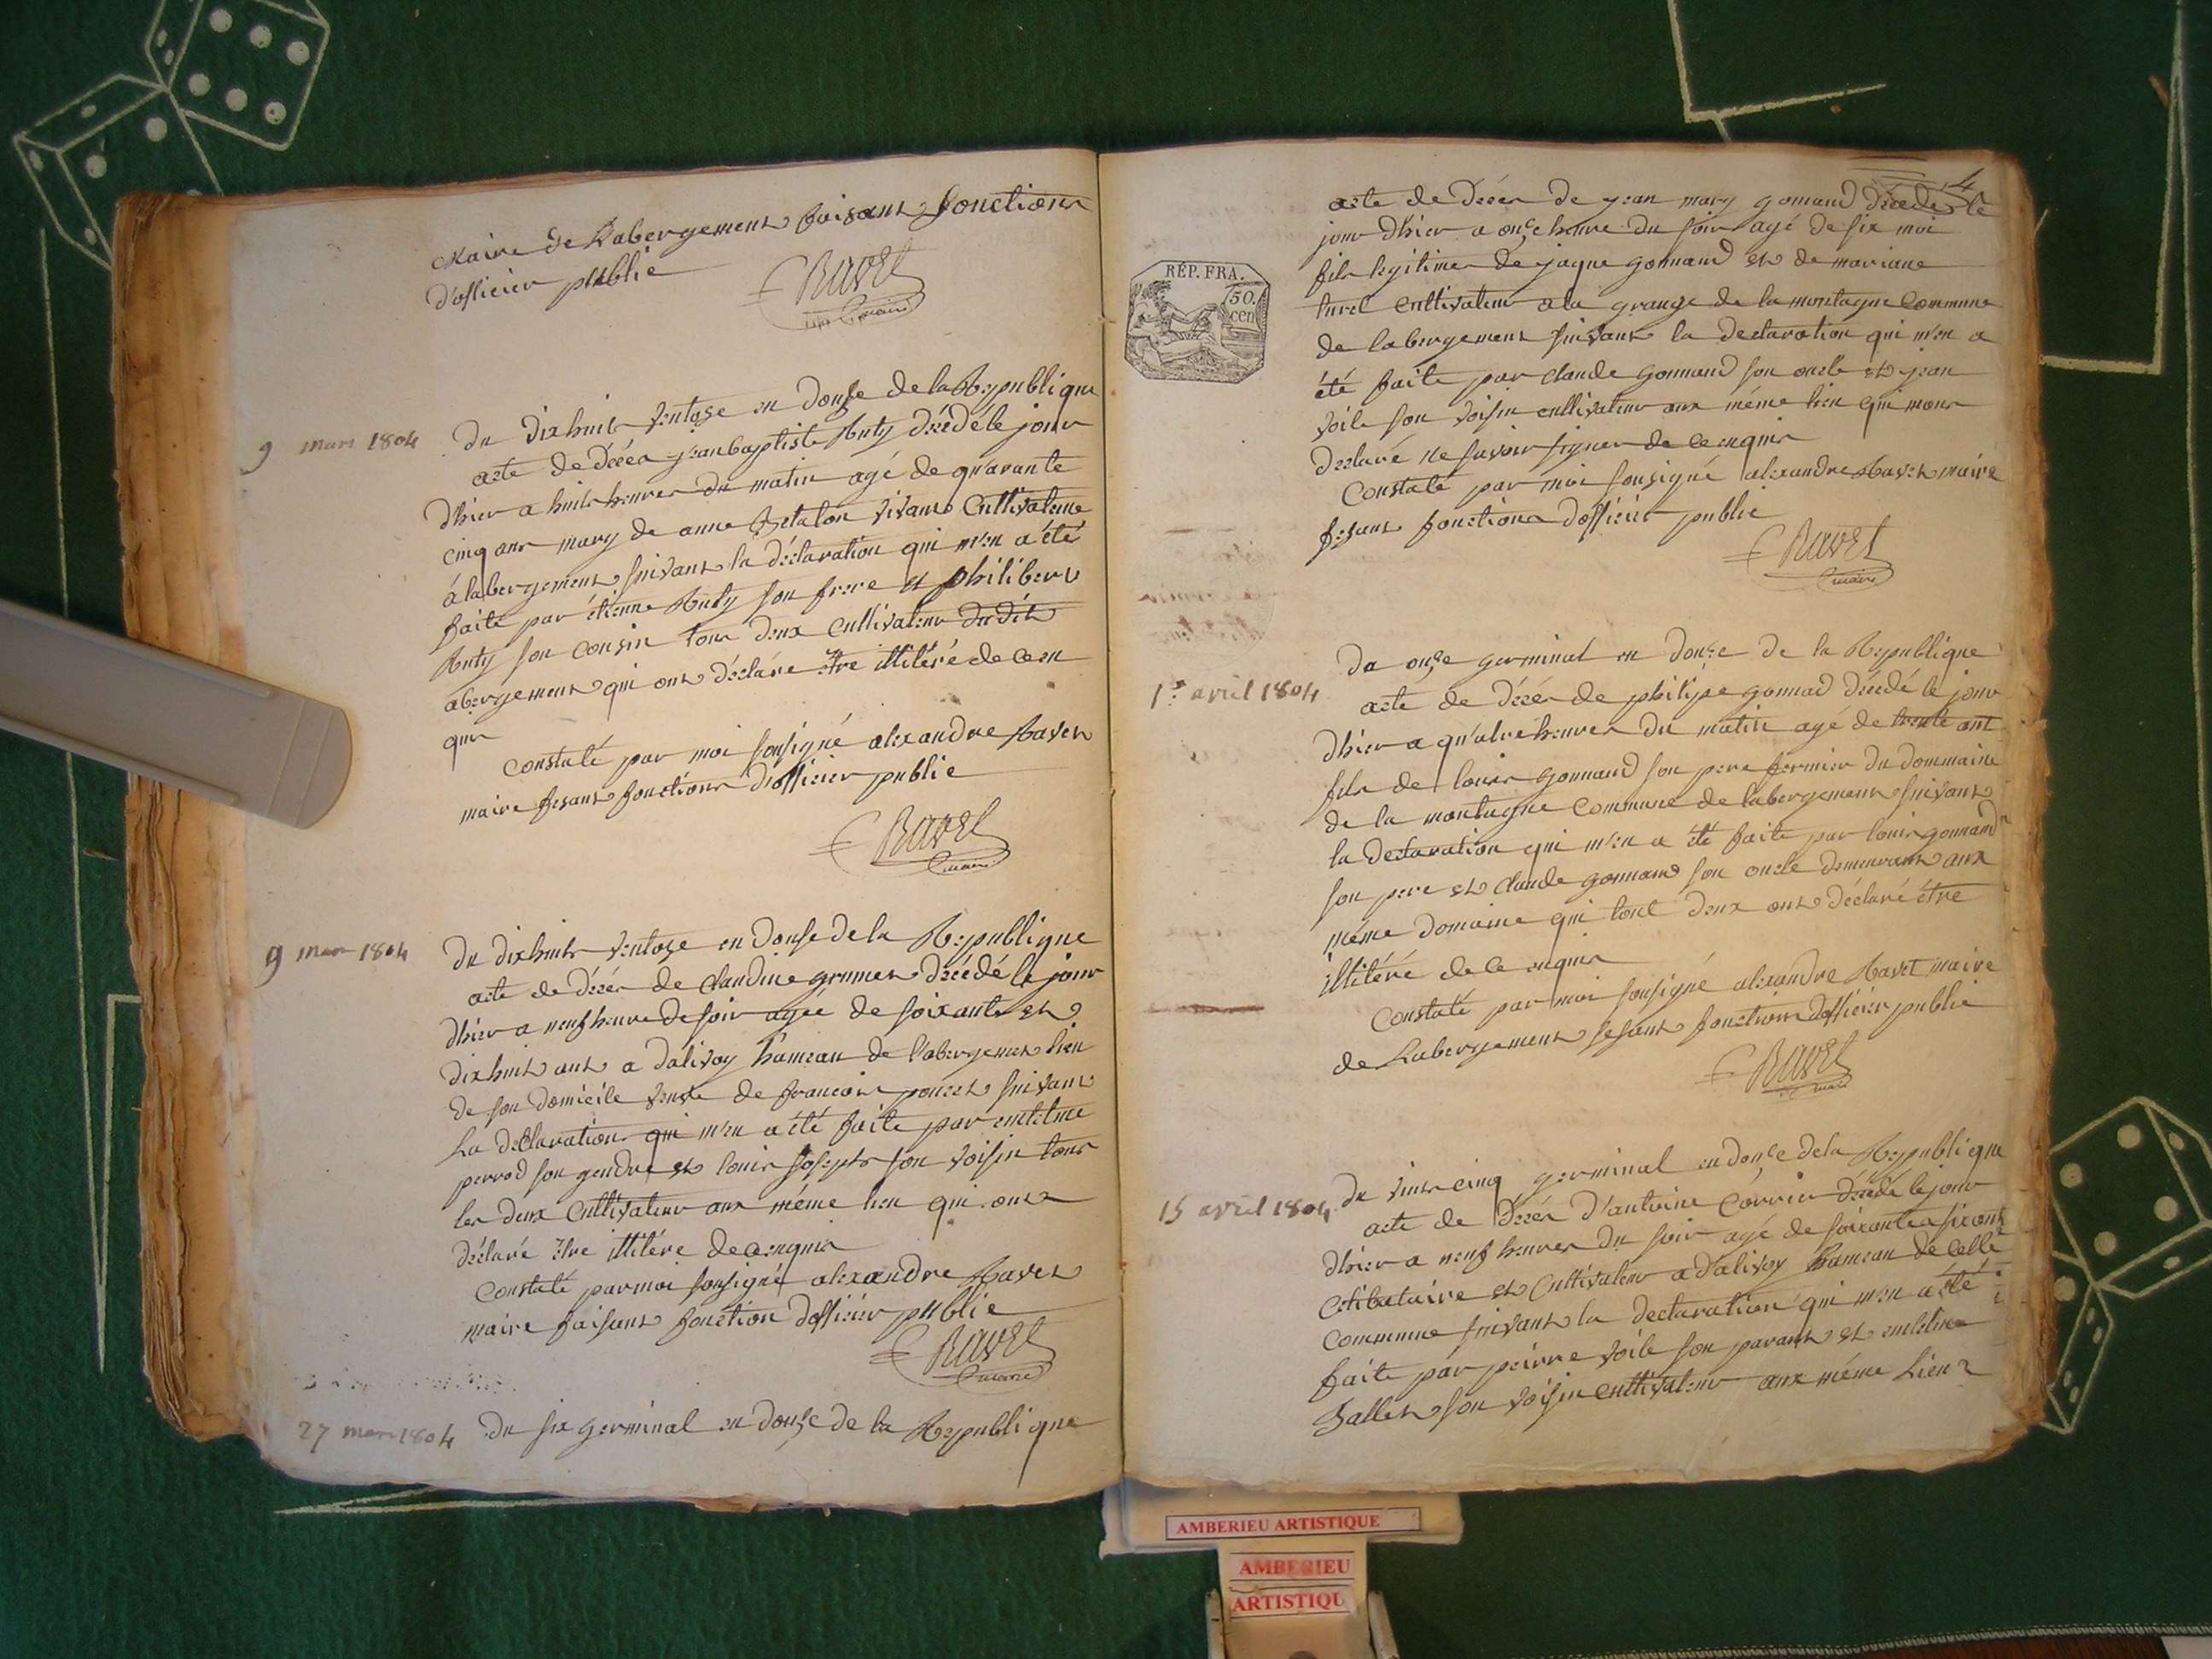 Maire de Labergement faisant fonctions
d'officier publie
Ravet
maire
9 mars 1804
du dixhuit ventose en douse de la Republique
acte de décéa jean baptiste Ruty décédé le jour
dhier a huit heures du matin agé de quarante
cinq ans mary de anne vivant Cultivateur
à labergement suivant la déclaration qui m'en a été
faite par étienne Ruty son frere et philibert
Ruty son cousin tous deux cultivateur dudit
abergement qui ont déclare être illitéré de ce en
quis
Constaté par moi sousigné alexandre Ravet
maire fesant fonctions d'officier publie
Ravet
maire
9 mars 1804
du dixhuit ventose en douse de la Republique
acte de décés de claudine grumet décédé le jour
dhier a neuf heure de soir agée de soixante et
dixhuit ans a dalivoy hameau de l'abergement lieu
de son domicile veuve de francois poncet suivant
La declaration qui m'en a été faite par entelme
perrod son gendre et louis joseph son voisin tous
les deux Cultivateur aux méme lieu qui ont
déclaré etre illitére de ce enquis
Constaté par moi sousigné alexandre Ravet
maire faisant fonction dofficier publie
Ravet
maire
27 mars 1804
du six germinal en douze de la Republique
4
acte de décés de jean mary gonaud décédé le
jour dhier a onze heure du soir agé de six moi
fils legitimes de jaque gonnand et de mariane
cultivateur a la grange de la montagne Commune
de labergement suivant la declaration qui m'en a
été faite par claude gonnand son oncle et jean
voile son voisin cultivateur aux même lieu qui mont
declaré ne savoir signer de ce enquis
Constaté par moi sousigné alexandre Ravet maire
fesant fonctions dofficier publie
Ravet
maire
RÉP. FRA.
50.
cen
1er avril 1804
Du onze germinal en douze de la Republique
acte de décés de philipe gonnad décédé le jour
dhier a qu'atre heures du matin agé de trente ant
fils de louis gonnand son pere fermier du dommaine
de la montagne Commune de labergement suivant
la declaration qui m'en a été faite par louis gonnand
son pere et claude gonnand son oncle demeurant aux
même domaine qui tout deux ont déclaré étre
illitéré de ce enquis
Constaté par moi sousigné alexandre Ravet maire
de Labergement fesant fonctions dofficier publie
Ravet
maire
15 avril 1804
du vint cinq germinal en douze de la Republique
acte de décés d'antoine Corrier décédé le jour
dhier a neuf heures du soir agé de soixante six ans
Celibataire et Cultivateur a dalivoy hameau de celle
commune suivant la declaration qui m'en a été
faite par peirre voile son parant et entelme
Ballet son voisin cultivateur aux même Lieu
AMBERIEU ARTISTIQUE
AMBERIEU
ARTISTIQU